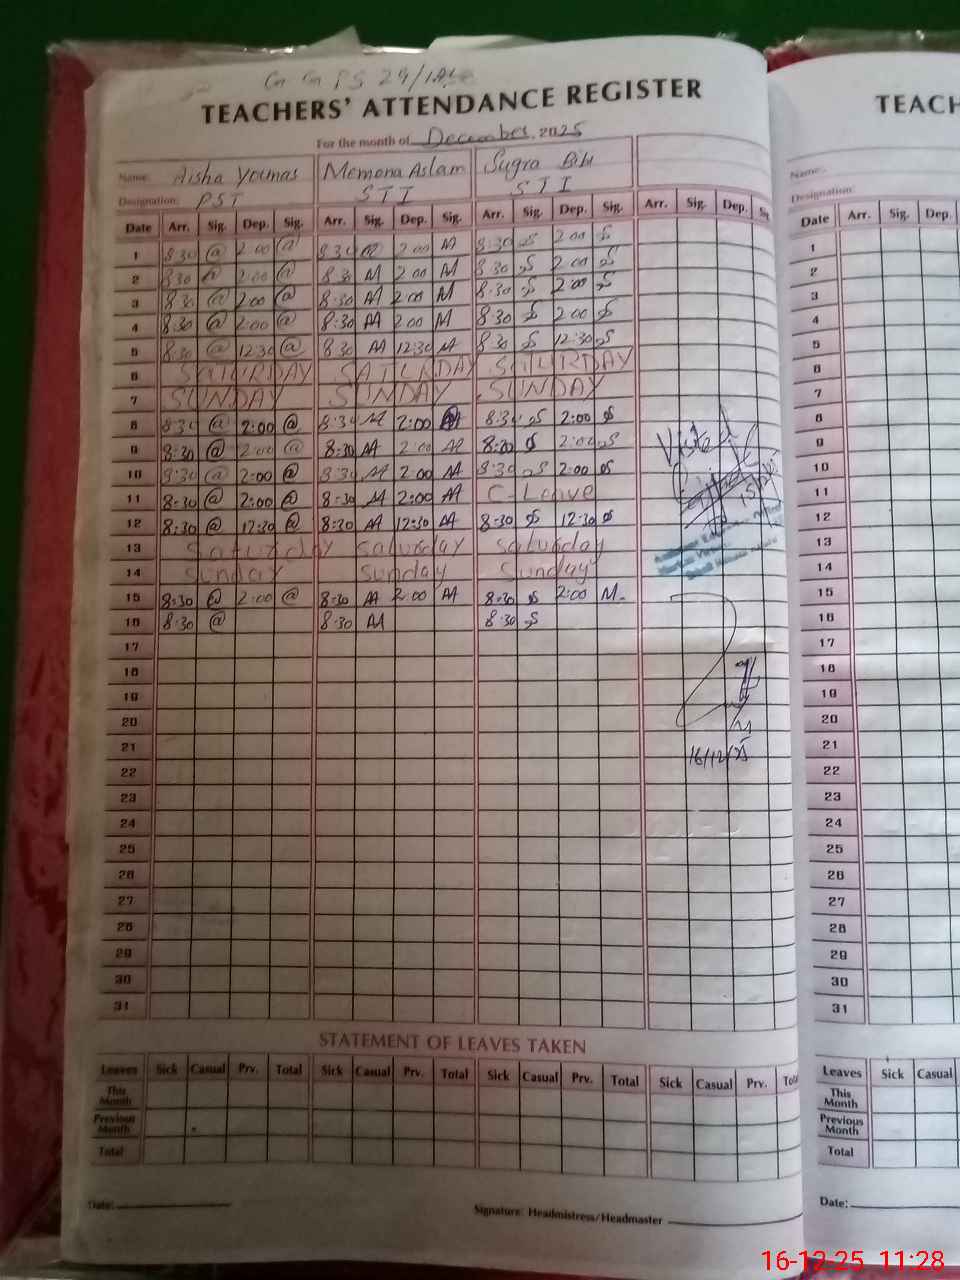 G G P S 29/
TEACHERS' ATTENDANCE REGISTER
TEACH
For the month of December, 2025
Name: Aisha Younas Memona Aslam Sugra Bibi
Name:
Designation: PST STI STI
Designation:
Date Arr. Sig. Dep. Sig. Arr. Sig. Dep. Sig. Arr. Sig. Dep. Sig. Arr. Sig. Dep. Sig.
Date Arr. Sig. Dep.
1 8:30 @ 2:00 @ 8:30 2:00 AA 8:30 S 2:00 S
2 8:30 @ 2:00 @ 8:30 M 2:00 M 8:30 S 2:00 S
3 8:30 @ 2:00 @ 8:30 AA 2:00 M 8:30 S 2:00 S
4 8:30 @ 2:00 @ 8:30 AA 2:00 M 8:30 S 2:00 S
5 8:30 @ 12:30 @ 8:30 AA 12:30 AA 8:30 S 12:30 S
6 SATURDAY SATURDAY SATURDAY
7 SUNDAY SUNDAY SUNDAY
8 8:30 @ 2:00 @ 8:30 M 2:00 AA 8:30 S 2:00 S
9 8:30 @ 2:00 @ 8:30 AA 2:00 AA 8:30 S 2:00 S
10 8:30 @ 2:00 @ 8:30 AA 2:00 AA 8:30 S 2:00 S
11 8:30 @ 2:00 @ 8:30 M 2:00 AA C-Leave
12 8:30 @ 12:30 @ 8:30 AA 12:30 AA 8:30 S 12:30 S
13 Saturday Saturday Saturday
14 Sunday Sunday Sunday
15 8:30 @ 2:00 @ 8:30 AA 2:00 AA 8:30 S 2:00 M.
16 8:30 @ 8:30 AA 8:30 S
Visited
16/12/25
17
18
19
20
21
22
23
24
25
26
27
28
29
30
31
1
2
3
4
5
6
7
8
9
10
11
12
13
14
15
16
17
18
19
20
21
22
23
24
25
26
27
28
29
30
31
STATEMENT OF LEAVES TAKEN
Leaves Sick Casual Prv. Total Sick Casual Prv. Total Sick Casual Prv. Total Sick Casual Prv. Total
This Month
Previous Month
Total
Leaves Sick Casual
This Month
Previous Month
Total
Date:
Signature: Headmistress/Headmaster
Date:
16-12-25 11:28